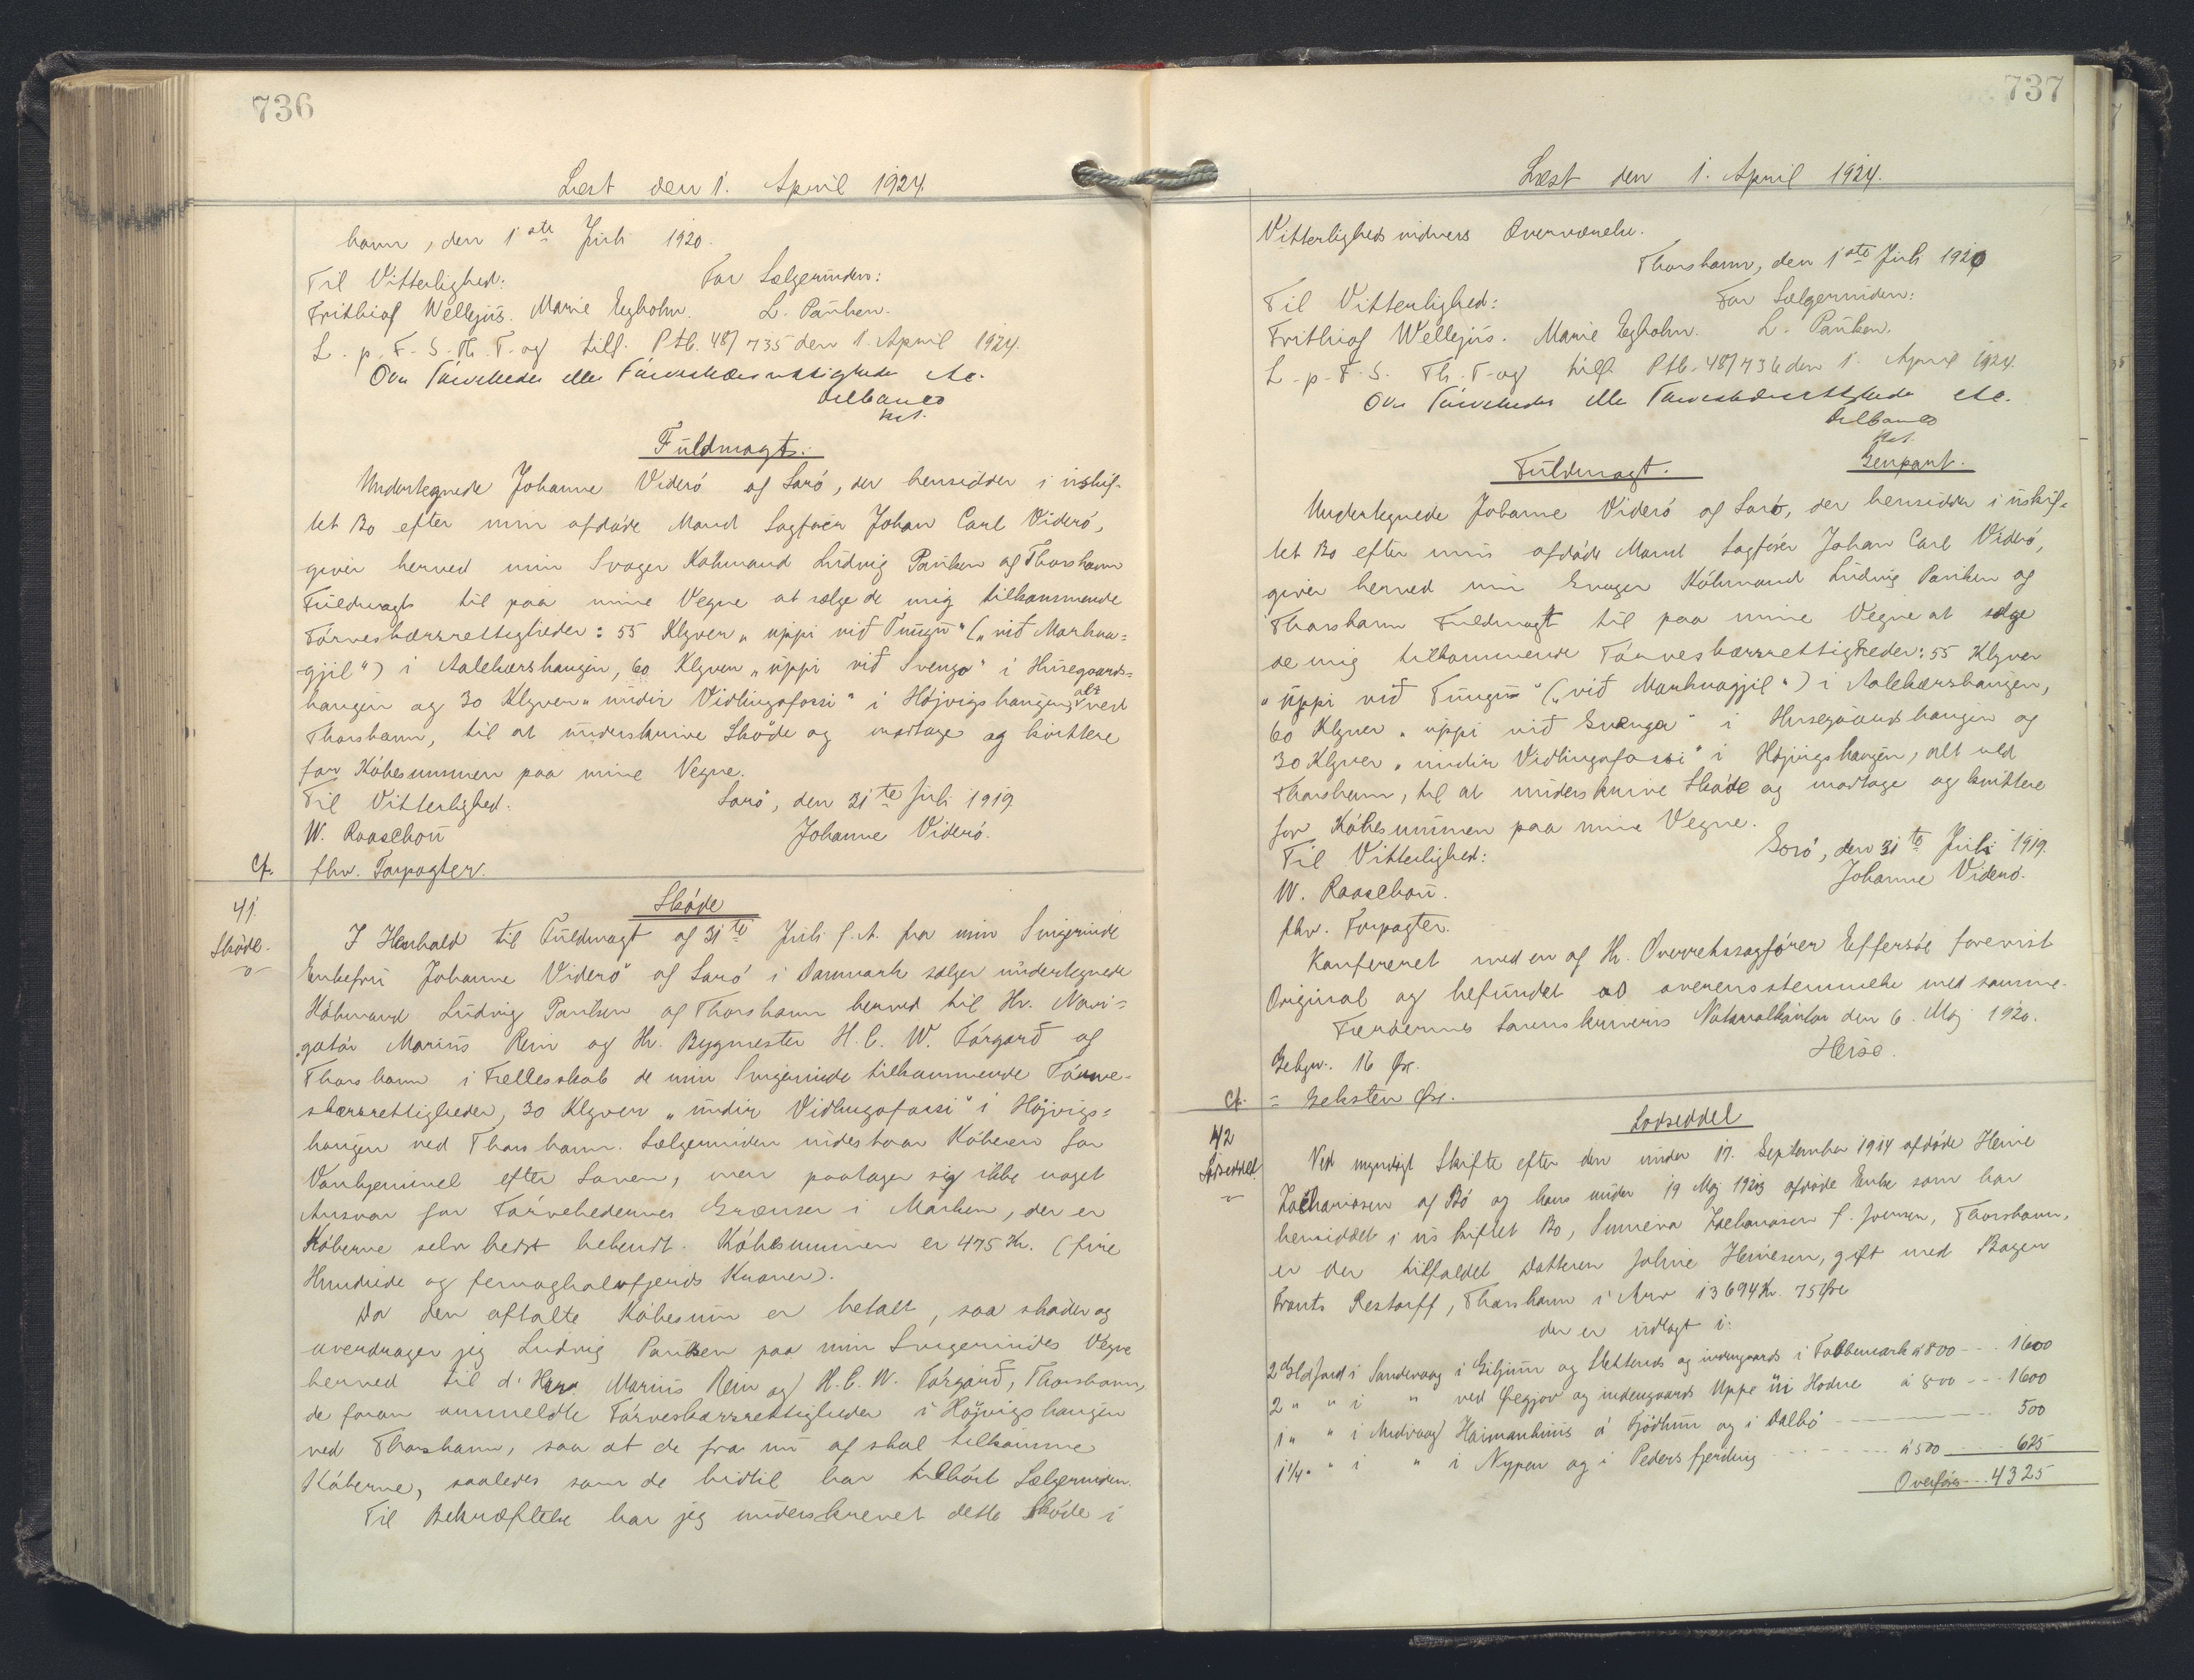 736
Læst den 1. April 1924.
havn, den 1ste Juli 1920.
Til Vitterlighed: For Sælgerinden:
Frithiof Wellejus. Marie Egholm. L. Paulsen.
L. p. F. S. Th. T. og tilf. Ptb. 48/735 den 1. April 1924.
Over Tørveheder eller Tørveskærsrettigheder etc.
Delbanco
kst.
Fuldmagt.
Undertegnede Johanne Viderö af Sorö, der hensidder i uskif-
tet Bo efter min afdøde Mand Sagfører Johan Carl Viderö,
giver herved min Svoger Købmand Ludvig Paulsen af Thorshavn
Fuldmagt til paa mine Vegne at sælge de mig tilkommende
Tørveskærsrettigheder: 55 Klyver „uppi við Tungu" („við Marknu=
gjil") i Aalekærshaugen, 60 Klyver „uppi við Svenga" i Husegaards=
haugen og 30 Klyver „undir Vidlingafossi" i Højvigshaugen, alt ved
Thorshavn, til at underskrive Skøde og modtage og kvittere
for Købesummen paa mine Vegne.
Til Vitterlighed: Sorö, den 31te Juli 1919.
W. Raaschou Johanne Viderö.
Cf. fhv. Forpagter.
Skøde
41.
Skøde.
I Henhold til Fuldmagt af 31te Juli f. A. fra min Svigerinde
Enkefru Johanne Viderö af Sorö i Danmark sælger undertegnede
Købmand Ludvig Paulsen af Thorshavn herved til Hr. Navi=
gatör Marius Rein og Hr. Bygmester H. C. W. Tórgarð af
Thorshavn i Fællesskab de min Svigerinde tilkommende Tørve=
skærsrettigheder, 30 Klyver „undir Vidlingafossi" i Højvigs=
haugen ved Thorshavn. Sælgerinden indestaar Køberen for
Vanhjemmel efter Loven, men paatager sig ikke noget
Ansvar for Tørvehedernes Grænser i Marken, der er
Køberne selv bedst bekendt. Købesummen er 475 Kr. (fire
Hundrede og femoghalvfjerds Kroner).
Da den aftalte Købesum er betalt, saa skøder og
overdrager jeg Ludvig Paulsen paa min Svigerindes Vegne
herved til d' Herr. Marius Rein og H. C. W. Tórgarð, Thorshavn,
de foran anmeldte Tørveskærsrettigheder i Højvigshaugen
ved Thorshavn, saa at de fra nu af skal tilkomme
Køberne, saaledes som de hidtil har tilhørt Sælgerinden.
Til Bekræftelse har jeg underskrevet dette Skøde i
737
Læst den 1. April 1924.
Vitterlighedsvidners Overværelse.
Thorshavn, den 1ste Juli 1920
Til Vitterlighed: For Sælgerinden:
Frithiof Wellejus. Marie Egholm. L. Paulsen.
L. p. F. S. Th. T. og tilf. Ptb. 48/736 den 1. April 1924.
Over Tørveheder eller Tørveskærsrettigheder etc.
Delbanco
kst.
Genpart.
Fuldmagt.
Undertegnede Johanne Viderö af Sorö, der hensidder i uskif=
tet Bo efter min afdøde Mand Sagfører Johan Carl Viderö,
giver herved min Svoger Købmand Ludvig Paulsen af
Thorshavn Fuldmagt til paa mine Vegne at sælge
de mig tilkommende Tørveskærsrettigheder: 55 Klyver
„uppi við Tungu" („við Marknagjil") i Aalekærshaugen,
60 Klyver „uppi við Svenga" i Husegaardshaugen og
30 Klyver „undir Vidlingafossi" i Højvigshaugen, alt ved
Thorshavn, til at underskrive Skøde og modtage og kvittere
for Købesummen paa mine Vegne.
Til Vitterlighed: Sorö, den 31te Juli 1919.
W. Raaschou. Johanne Viderö.
fhv. Forpagter.
Konfereret med en af Hr. Overretssagfører Effersöe forevist
Original og befundet at overensstemmelse med samme.
Færøernes Sorenskriveris Notarialkontor den 6. Maj 1920.
Heise.
Gebyr. 16 Øre.
Cf. = Seksten Øre.
Lodseddel
42
Lodseddel.
Ved myndigt Skifte efter den under 17. September 1914 afdøde Heine
Zachariasen af Bö og hans under 19 Maj 1923 afdøde Enke som har
hensiddet i uskiftet Bo, Sunneva Zachariasen f. Joensen, Thorshavn,
er der tilfaldet Datteren Joline Heinesen, gift med Bager
Frants Restorff, Thorshavn i Arv 13694 Kr. 75 Øre
der er udlagt i:
2 Gld Jord i Sandevaag i Giljum og Slettends og indengaards i Fabbemark à 800 - - - 1600
2 " " i " ved Øregjov og indengaards Uppe úi Hodne à 800 - - - 1600
1 " " i Midvaag Haimanhuus á Fjødlum og i Dalbö - - - 500
1 1/4 " " i " i Nypen og i Peders fjerding - - - à 500 - - - 625
Overføres - - - 4325